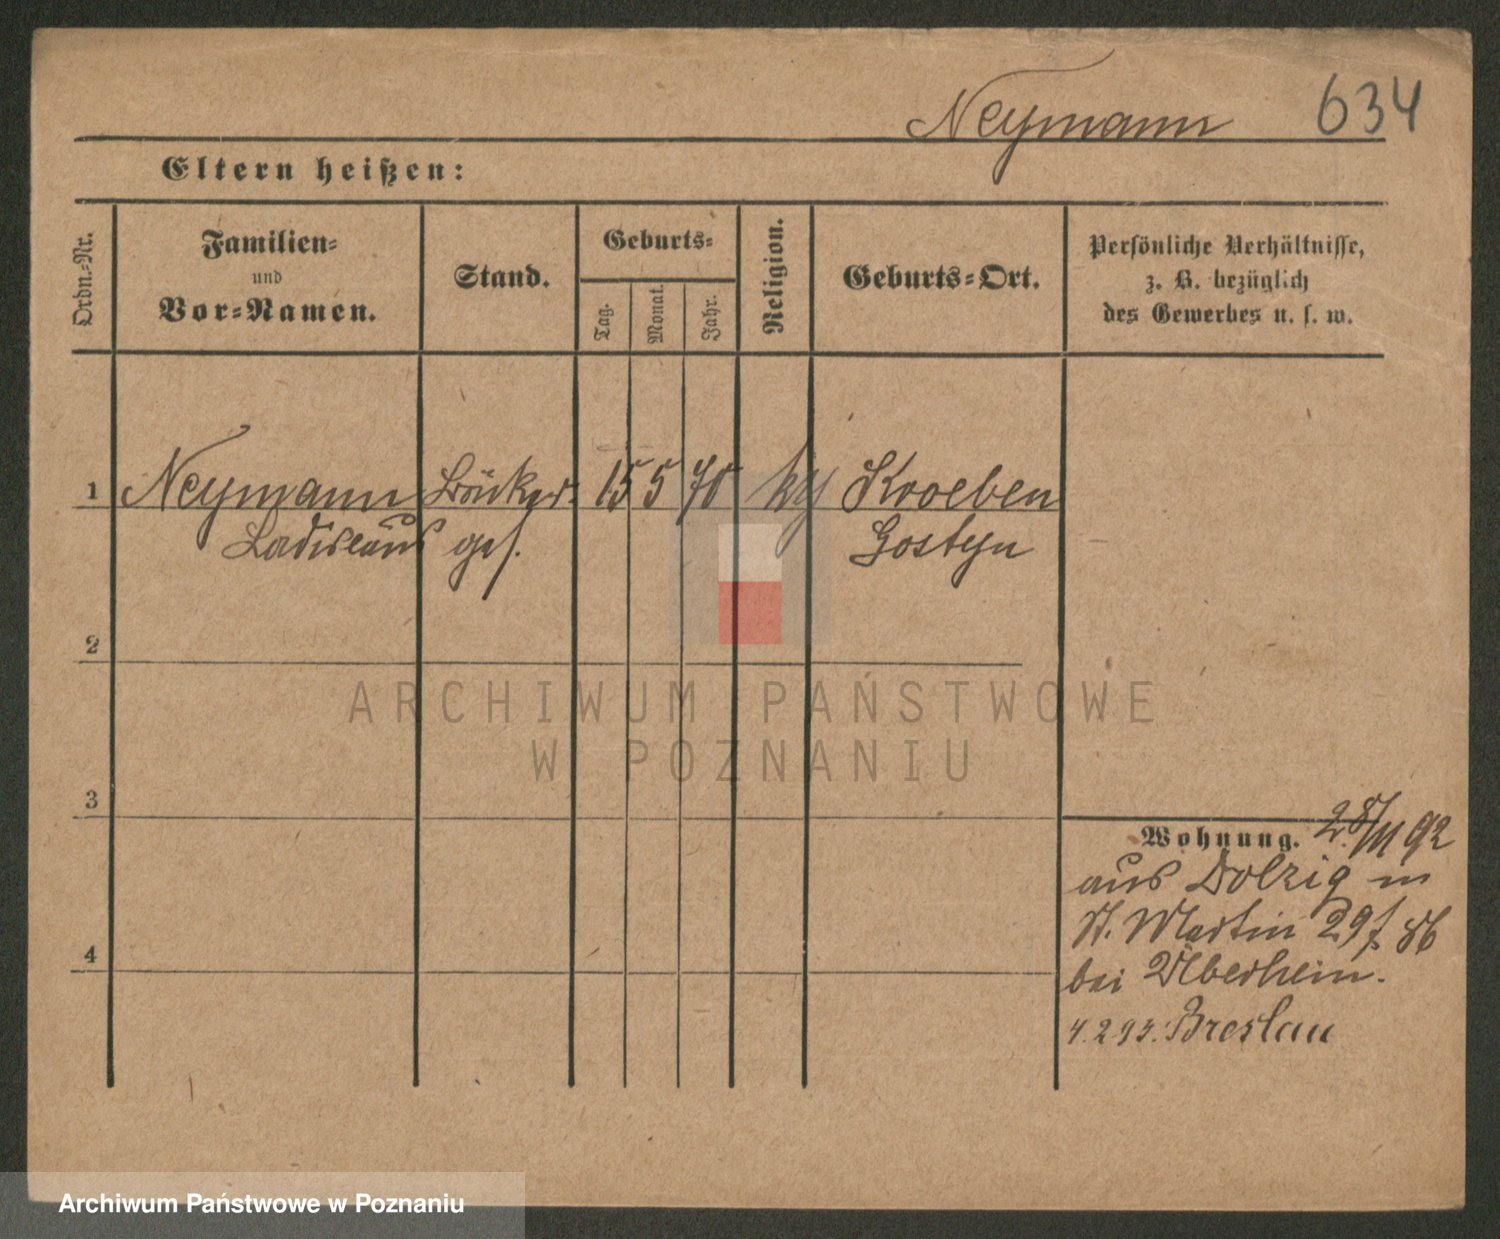 Neymann 634
Eltern heißen:
Ordn.-Nr.
Familien-
und
Vor-Namen.
Stand.
Geburts-
Tag.
Monat.
Jahr.
Religion.
Geburts-Ort.
Persönliche Verhältnisse,
z. B. bezüglich
des Gewerbes u. s. w.
1 Neymann Bäcker 15 5 70 Kroeben
Ladislaus ges. Gostyn
2
ARCHIWUM PAŃSTWOWE
W POZNANIU
3
Wohnung. 28/11 92
aus Dolzig in
St. Martin 29
bei
4
4.2.93. Breslau
Archiwum Państwowe w Poznaniu